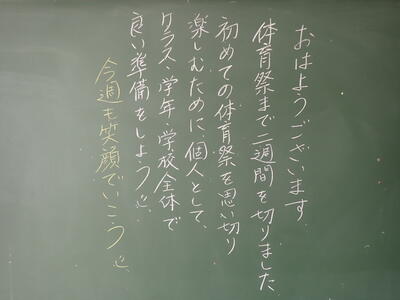 おはようございます
体育祭まで二週間を切りました
初めての体育祭を思い切り
楽しむために、個人として、
クラス・学年 学校全体で
良い準備をしよう
今週も笑顔でいこう